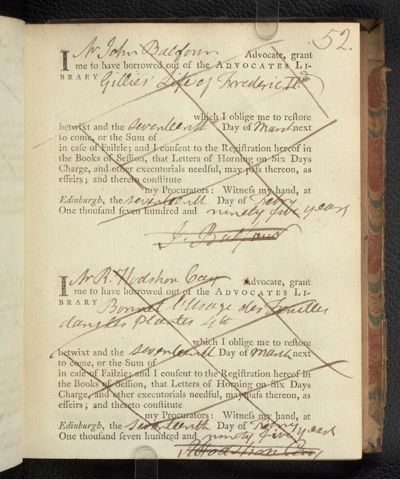 52.
I Mr John Balfour Advocate, grant
me to have borrowed out of the ADVOCATES LI-
BRARY Gillies' Life of Frederic IId
which I oblige me to restore
betwixt and the seventeenth Day of March next
to come, or the Sum of
in case of Failzie; and I consent to the Registration hereof in
the Books of Session, that Letters of Horning on Six Days
Charge, and other executorials needful, may pass thereon, as
effeirs; and thereto constitute
my Procurators: Witness my hand, at
Edinburgh, the seventeenth Day of Febry
One thousand seven hundred and ninety five years
J. Balfour
I Mr R. Hodshon Cay Advocate, grant
me to have borrowed out of the ADVOCATES LI-
BRARY Bonnet l'Usage des feuilles
dans les Plantes 4to
which I oblige me to restore
betwixt and the seventeenth Day of March next
to come, or the Sum of
in case of Failzie; and I consent to the Registration hereof in
the Books of Session, that Letters of Horning on Six Days
Charge, and other executorials needful, may pass thereon, as
effeirs; and thereto constitute
my Procurators: Witness my hand, at
Edinburgh, the seventeenth Day of Febry
One thousand seven hundred and ninety five years
R Hodshon Cay